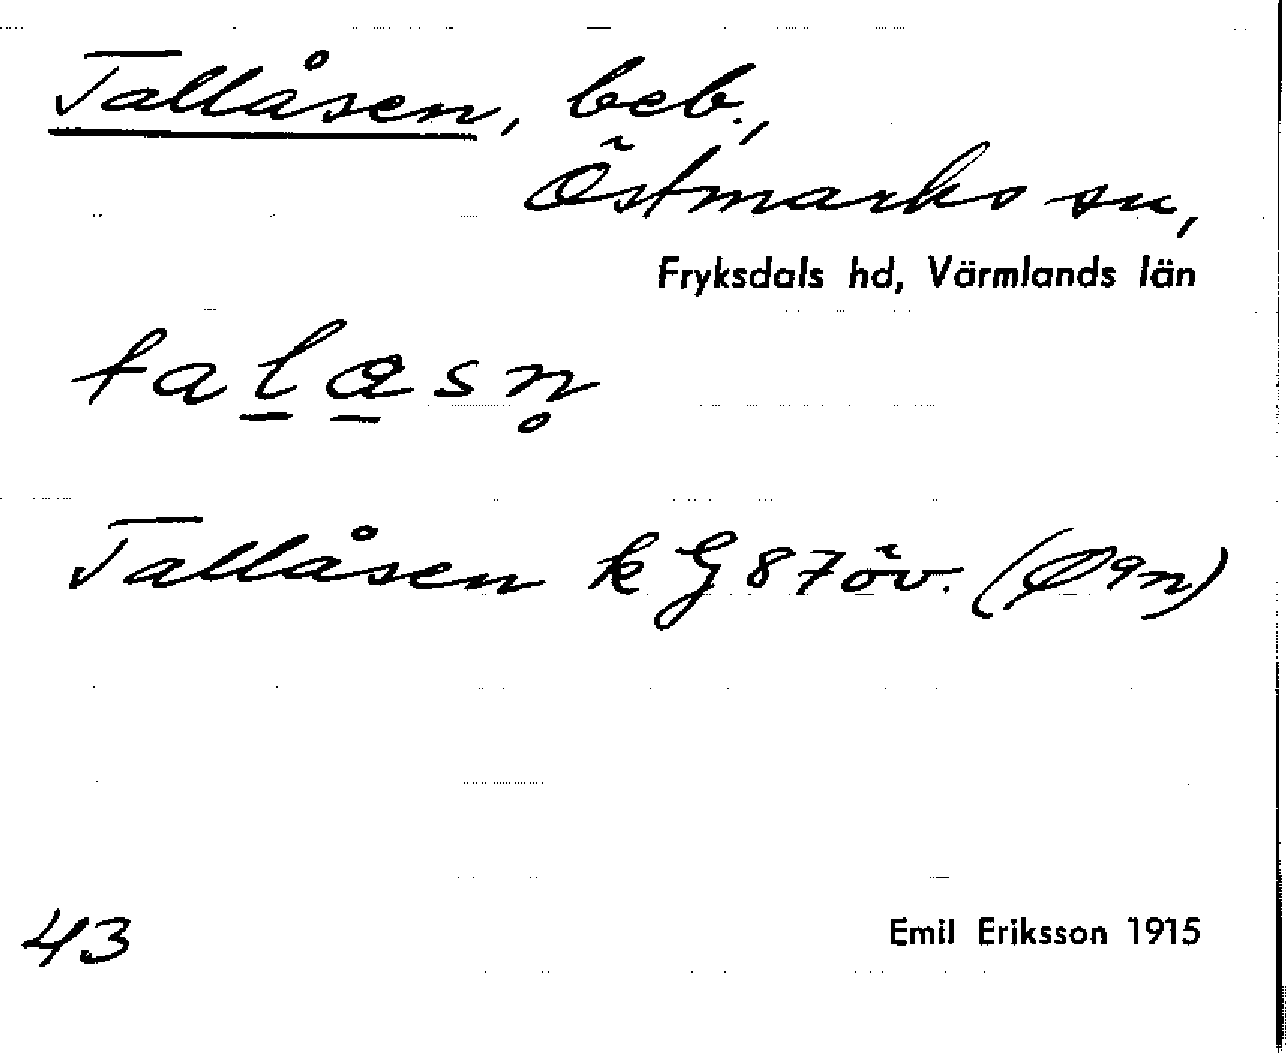 Tallåsen, beb.,
Östmarks sn,
Fryksdals hd, Värmlands län
Tallåsen k G87öv. (Ø9n)
43
Emil Eriksson 1915